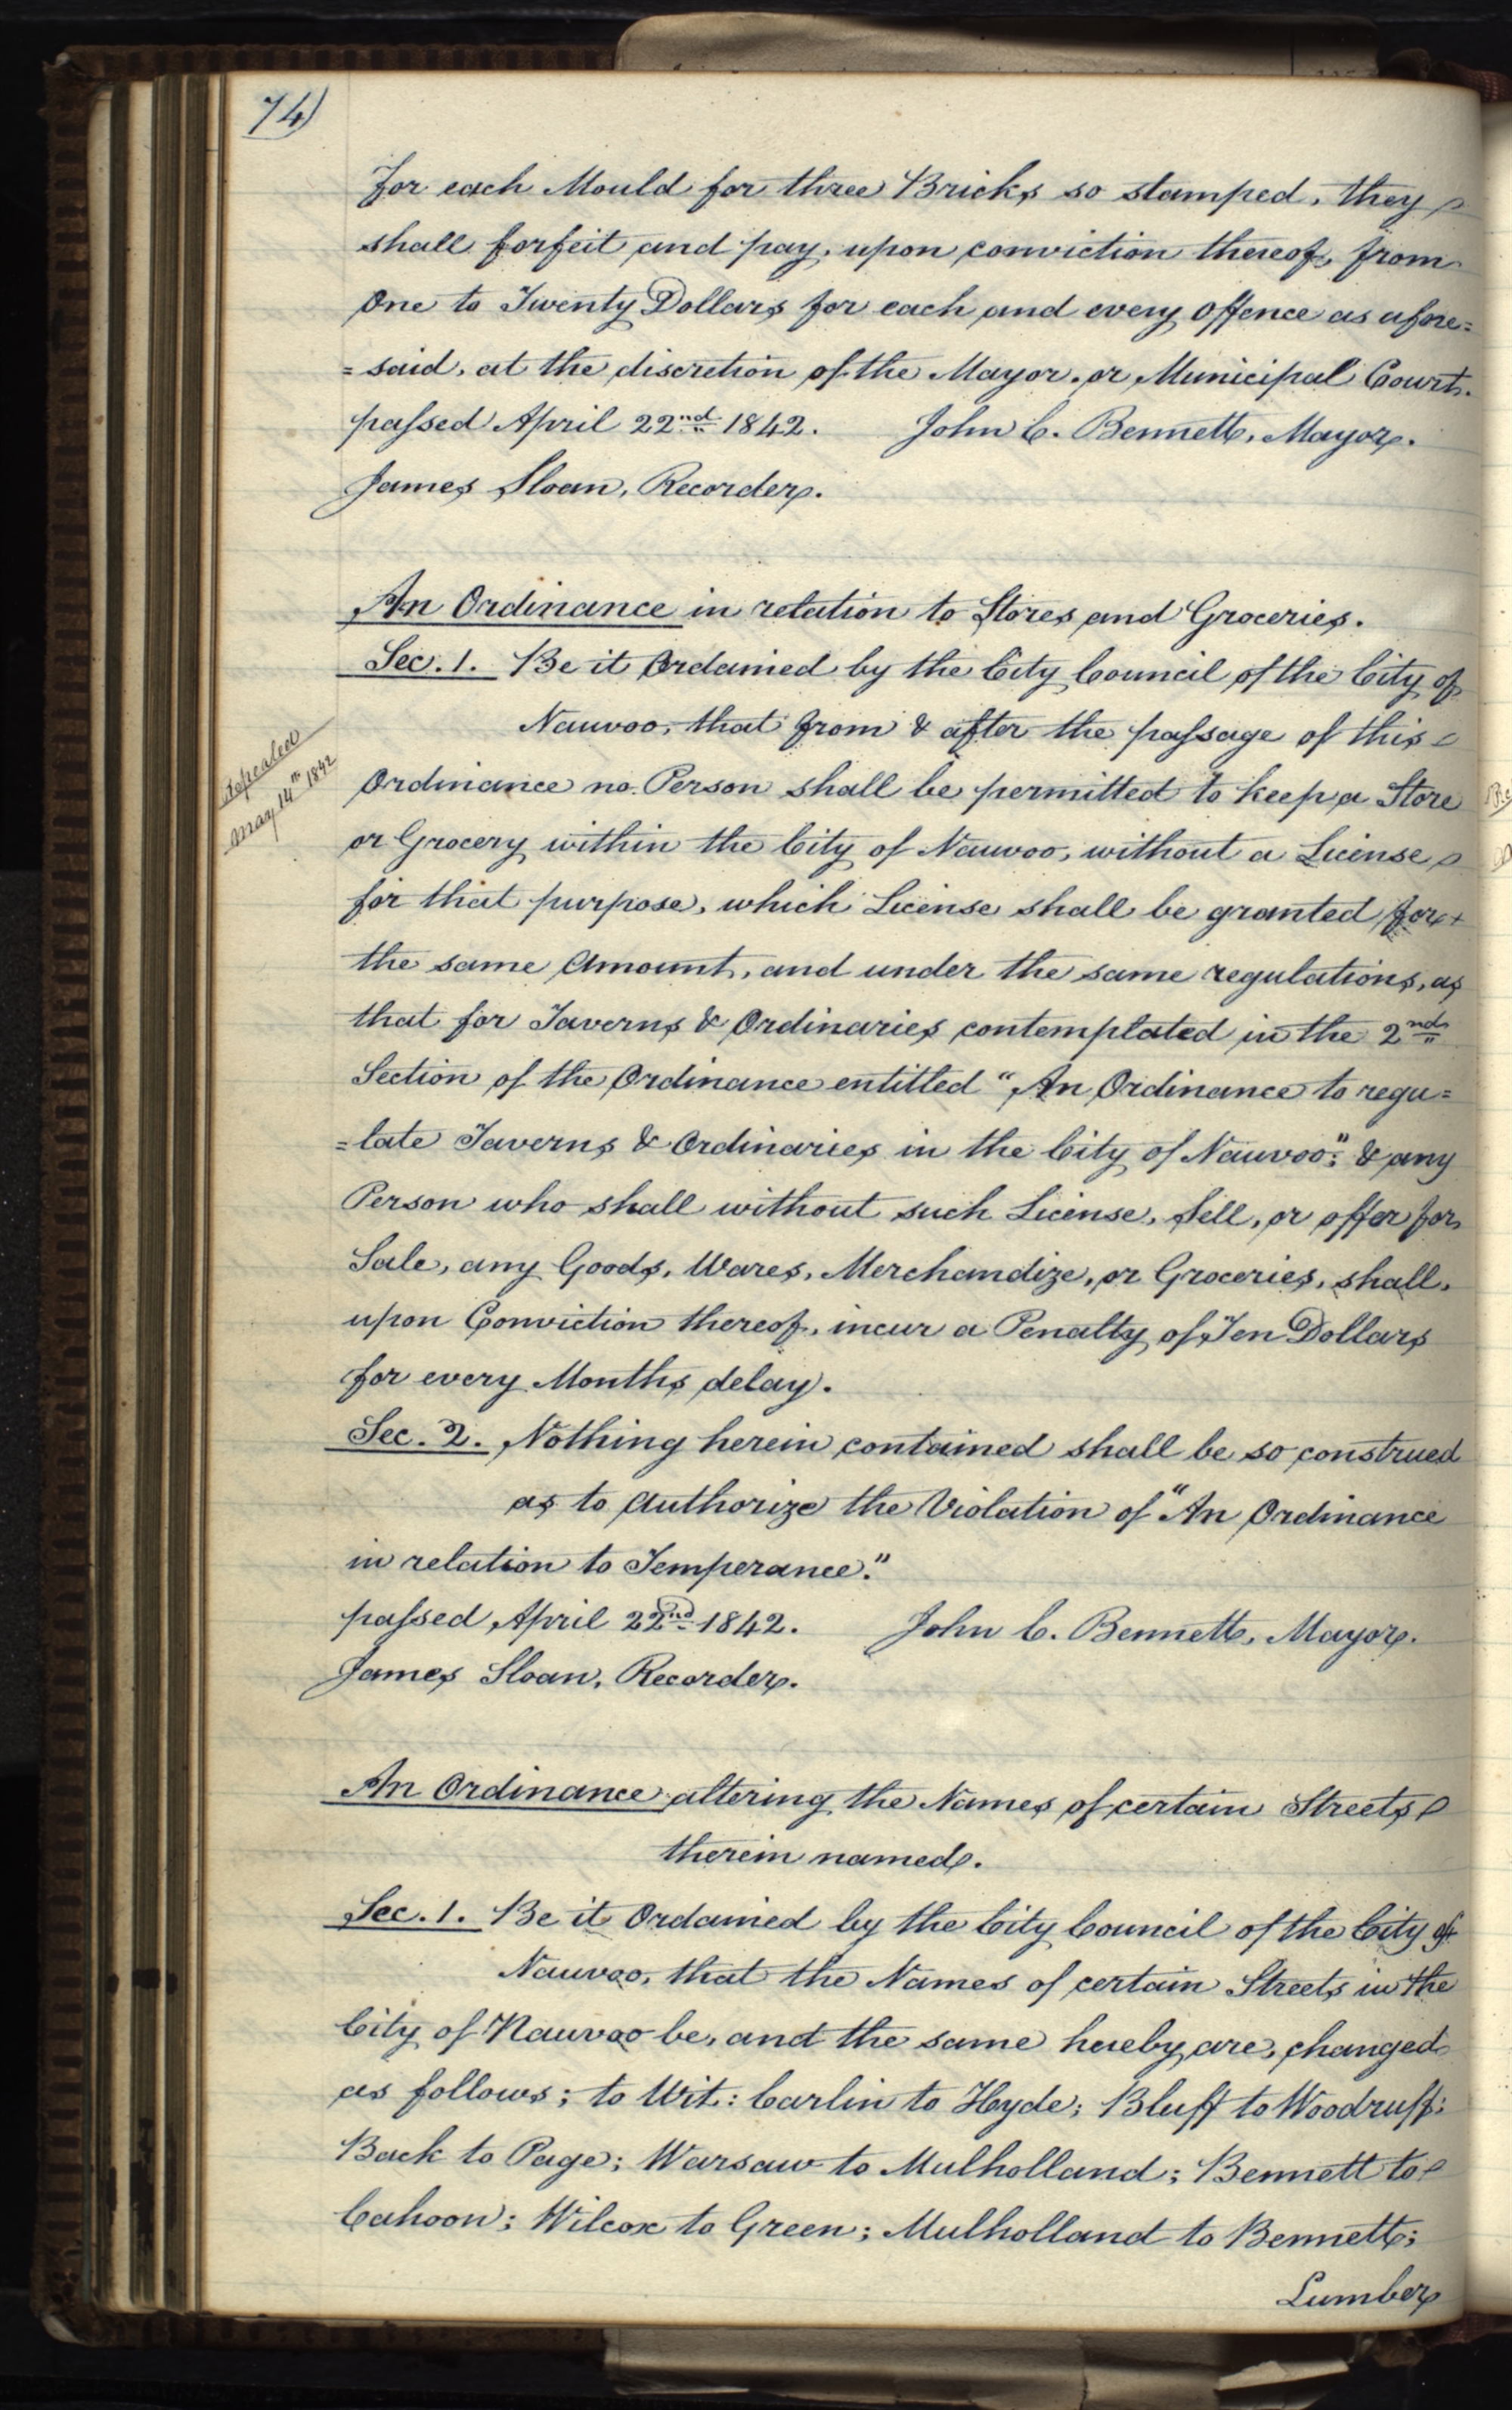 74)
for each Mould for three Bricks so stamped, they
shall forfeit and pay, upon conviction thereof, from
One to Twenty Dollars for each and every offence as afore=
=said, at the discretion of the Mayor. or Municipal Court.
passed April 22nd 1842. John C. Bennett, Mayor.
James Sloan, Recorder.
An Ordinance in relation to Stores and Groceries.
Sec. 1. Be it Ordained by the City Council of the City of
Nauvoo, that from & after the passage of this
Ordinance no Person shall be permitted to keep a Store
or Grocery within the City of Nauvoo, without a License
for that purpose, which License shall be granted for
the same Amount, and under the same regulations, as
that for Taverns & Ordinaries contemplated in the 2nd
Section of the Ordinance entitled "An Ordinance to regu=
=late Taverns & Ordinaries in the City of Nauvoo"; & any
Person who shall without such License, Sell, or offer for
Sale, any Goods, Wares, Merchandize, or Groceries, shall,
upon Conviction thereof, incur a Penalty of Ten Dollars
for every Months delay.
Sec. 2. Nothing herein contained shall be so construed
as to Authorize the Violation of "An Ordinance
in relation to Temperance."
passed April 22nd 1842. John C. Bennett, Mayor.
James Sloan, Recorder.
repealed
May 14th 1842
An Ordinance altering the Names of certain Streets
therein named.
Sec. 1. Be it Ordained by the City Council of the City of
Nauvoo, that the Names of certain Streets in the
City of Nauvoo be, and the same hereby are, changed
as follows; to Wit: Carlin to Hyde; Bluff to Woodruff;
Back to Page; Warsaw to Mulholland; Bennett to
Cahoon; Wilcox to Green; Mulholland to Bennett;
Lumber